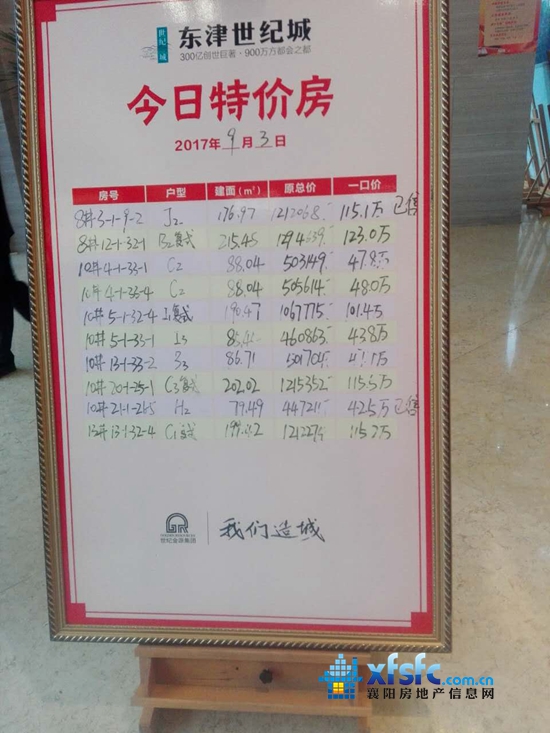 世纪城
东津世纪城
300亿创世巨著·900万方都会之都
今日特价房
2017年9月3日
房号 户型 建面（m²） 原总价 一口价
8#3-1-9-2 J2 176.97 1212068 115.1万 已售
8#12-1-32-1 B2复式 215.45 1294639 123.0万
10#4-1-33-1 C2 88.04 503149 47.8万
10#4-1-33-4 C2 88.04 505614 48.0万
10#5-1-32-4 复式 190.47 1067775 101.4万
10#5-1-33-1 460863 43.8万
10#13-1-33-2 86.71 501704
10#20-1-25-1 C3复式 202.02 1215352 115.5万
10#21-1-26-5 H2 79.49 44721 42.5万 已售
13-1-32-4 C1复式 115.2万
世纪金源集团
我们造城
xfsfc.com.cn
襄阳房地产信息网